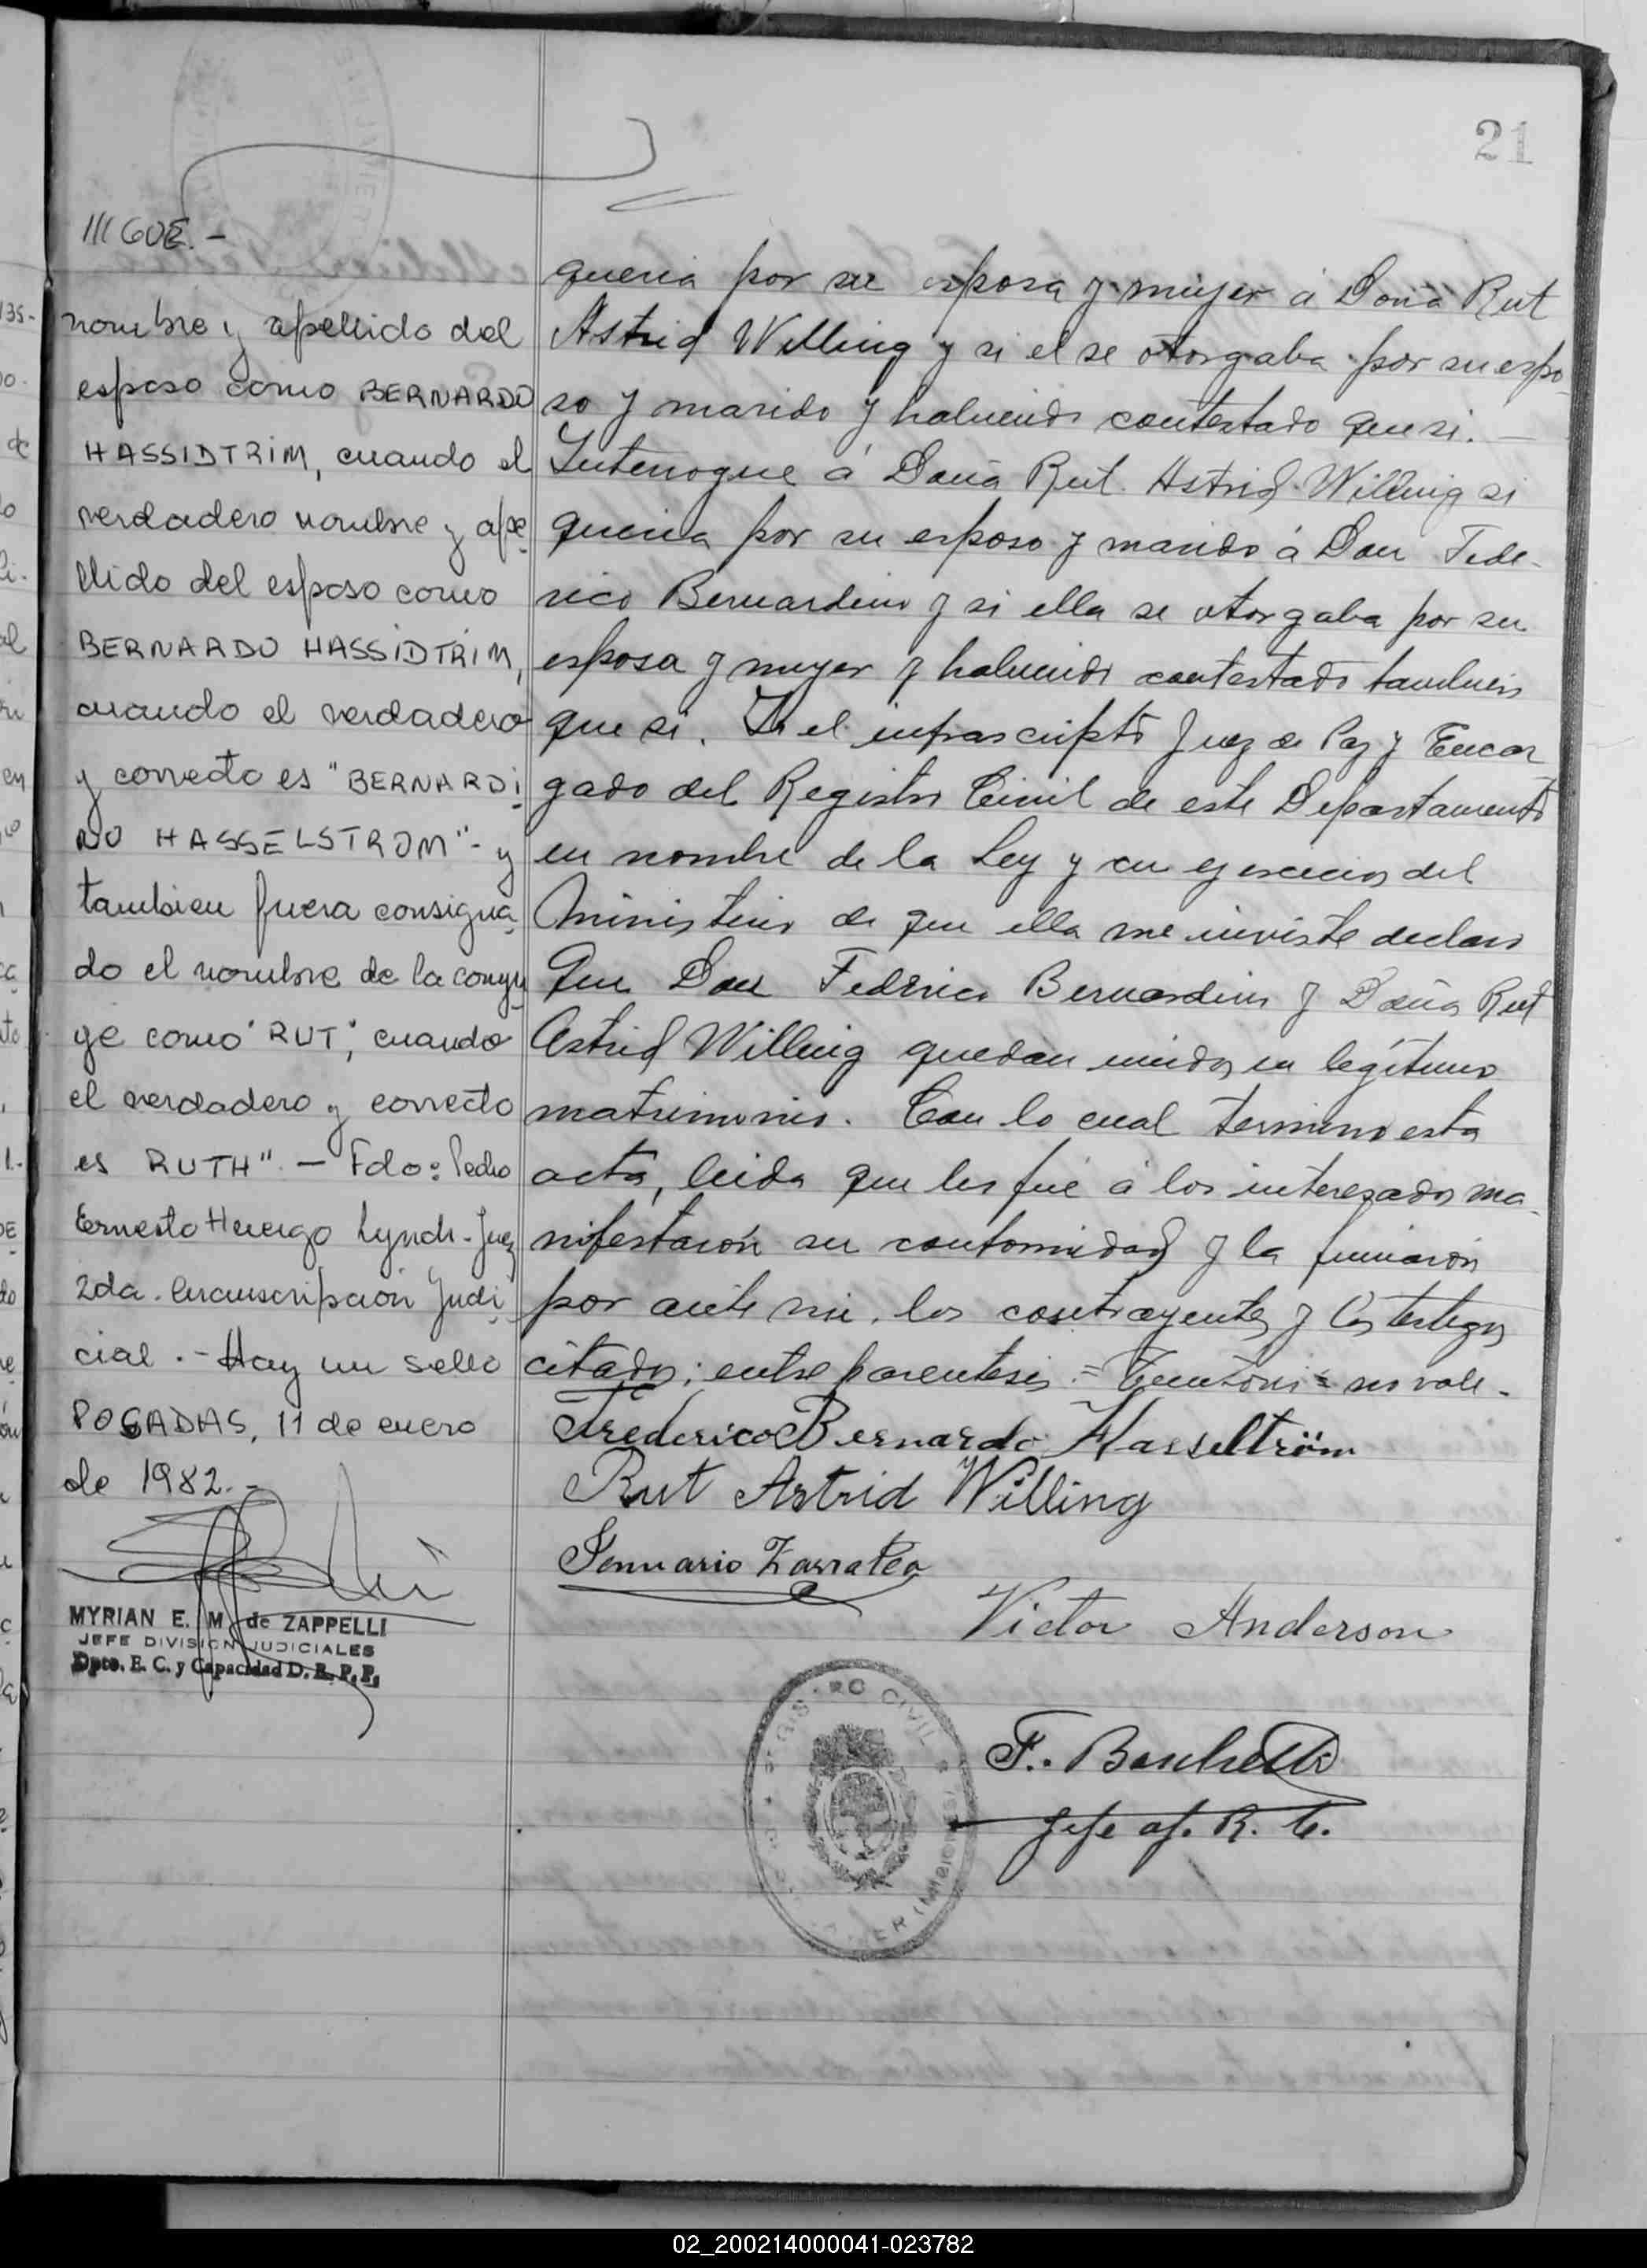 21
III GUE.-
nombre y apellido del
esposo como BERNARDO
HASSIDTRIM, cuando el
verdadero nombre y ape
llido del esposo como
BERNARDO HASSIDTRIM,
cuando el verdadero
y correcto es "BERNARDI
NO HASSELSTROM"- y
tambien fuera consigna
do el nombre de la conyu
ge como "RUT", cuando
el verdadero y correcto
es RUTH". - Fdo: Pedro
Ernesto Huergo Lynch - Juez
2da. Circunscripción Judi
cial.- Hay un sello
POSADAS, 11 de enero
de 1982.-
MYRIAN E. M. de ZAPPELLI
JEFE DIVISION JUDICIALES
Dpto. E. C. y Capacidad D. R. P. P.
queria por su esposa y mujer á Doña Rut
Astrid Willing y si el se otorgaba por su espo
so y marido y habiendo contestado que si. —
Interrogue á Doña Rut Astrid Willing si
queria por su esposo y marido á Don Fede-
rico Bernardino y si ella se otorgaba por su
esposa y mujer y habiendo contestado tambien
que si. Yo el infrascripto Juez de Paz y Encar
gado del Registro Civil de este Departamento
en nombre de la Ley y en ejercicio del
Ministerio de que ella me inviste declaro
Que Don Federico Bernardino y Doña Rut
Astrid Willing quedan unidos en legítimo
matrimonio. Con lo cual termino esta
acta, leida que les fué á los interezados ma
nifestarón su conformidad y la firmarón
por ante mi, los contrayentes y los testigos
citados; entre parentesis = = no vale.
Frederico Bernardo Hasseltröm
Rut Astrid Willing
Jenuario Zarratea
Victor Anderson
REGISTRO CIVIL
(MISIONES)
F.
Jefe of. R. C.
02_200214000041-023782